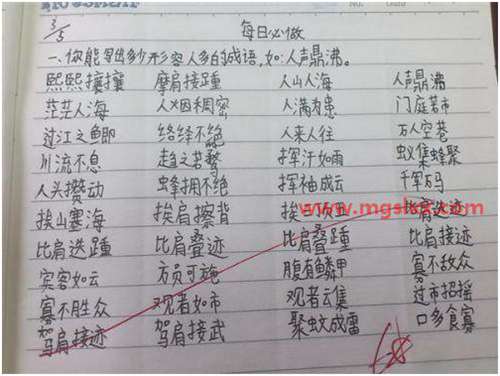 3/5
每日必做
一、你能写出多少形容人多的成语,如:人声鼎沸。
熙熙攘攘 摩肩接踵 人山人海 人声鼎沸
茫茫人海 人烟稠密 人满为患 门庭若市
过江之鲫 络绎不绝 人来人往 万人空巷
川流不息 趋之若鹜 挥汗如雨 蚁集蜂聚
人头攒动 蜂拥不绝 挥袖成云
挨山塞海 挨肩擦背 比肩迭迹
比肩迭踵 比肩叠迹 比肩叠踵 比肩接迹
宾客如云 方员可施 腹有鳞甲 寡不敌众
寡不胜众 观者如市 观者云集 过市招摇
驾肩接迹 驾肩接武 聚蚊成雷 口多食寡